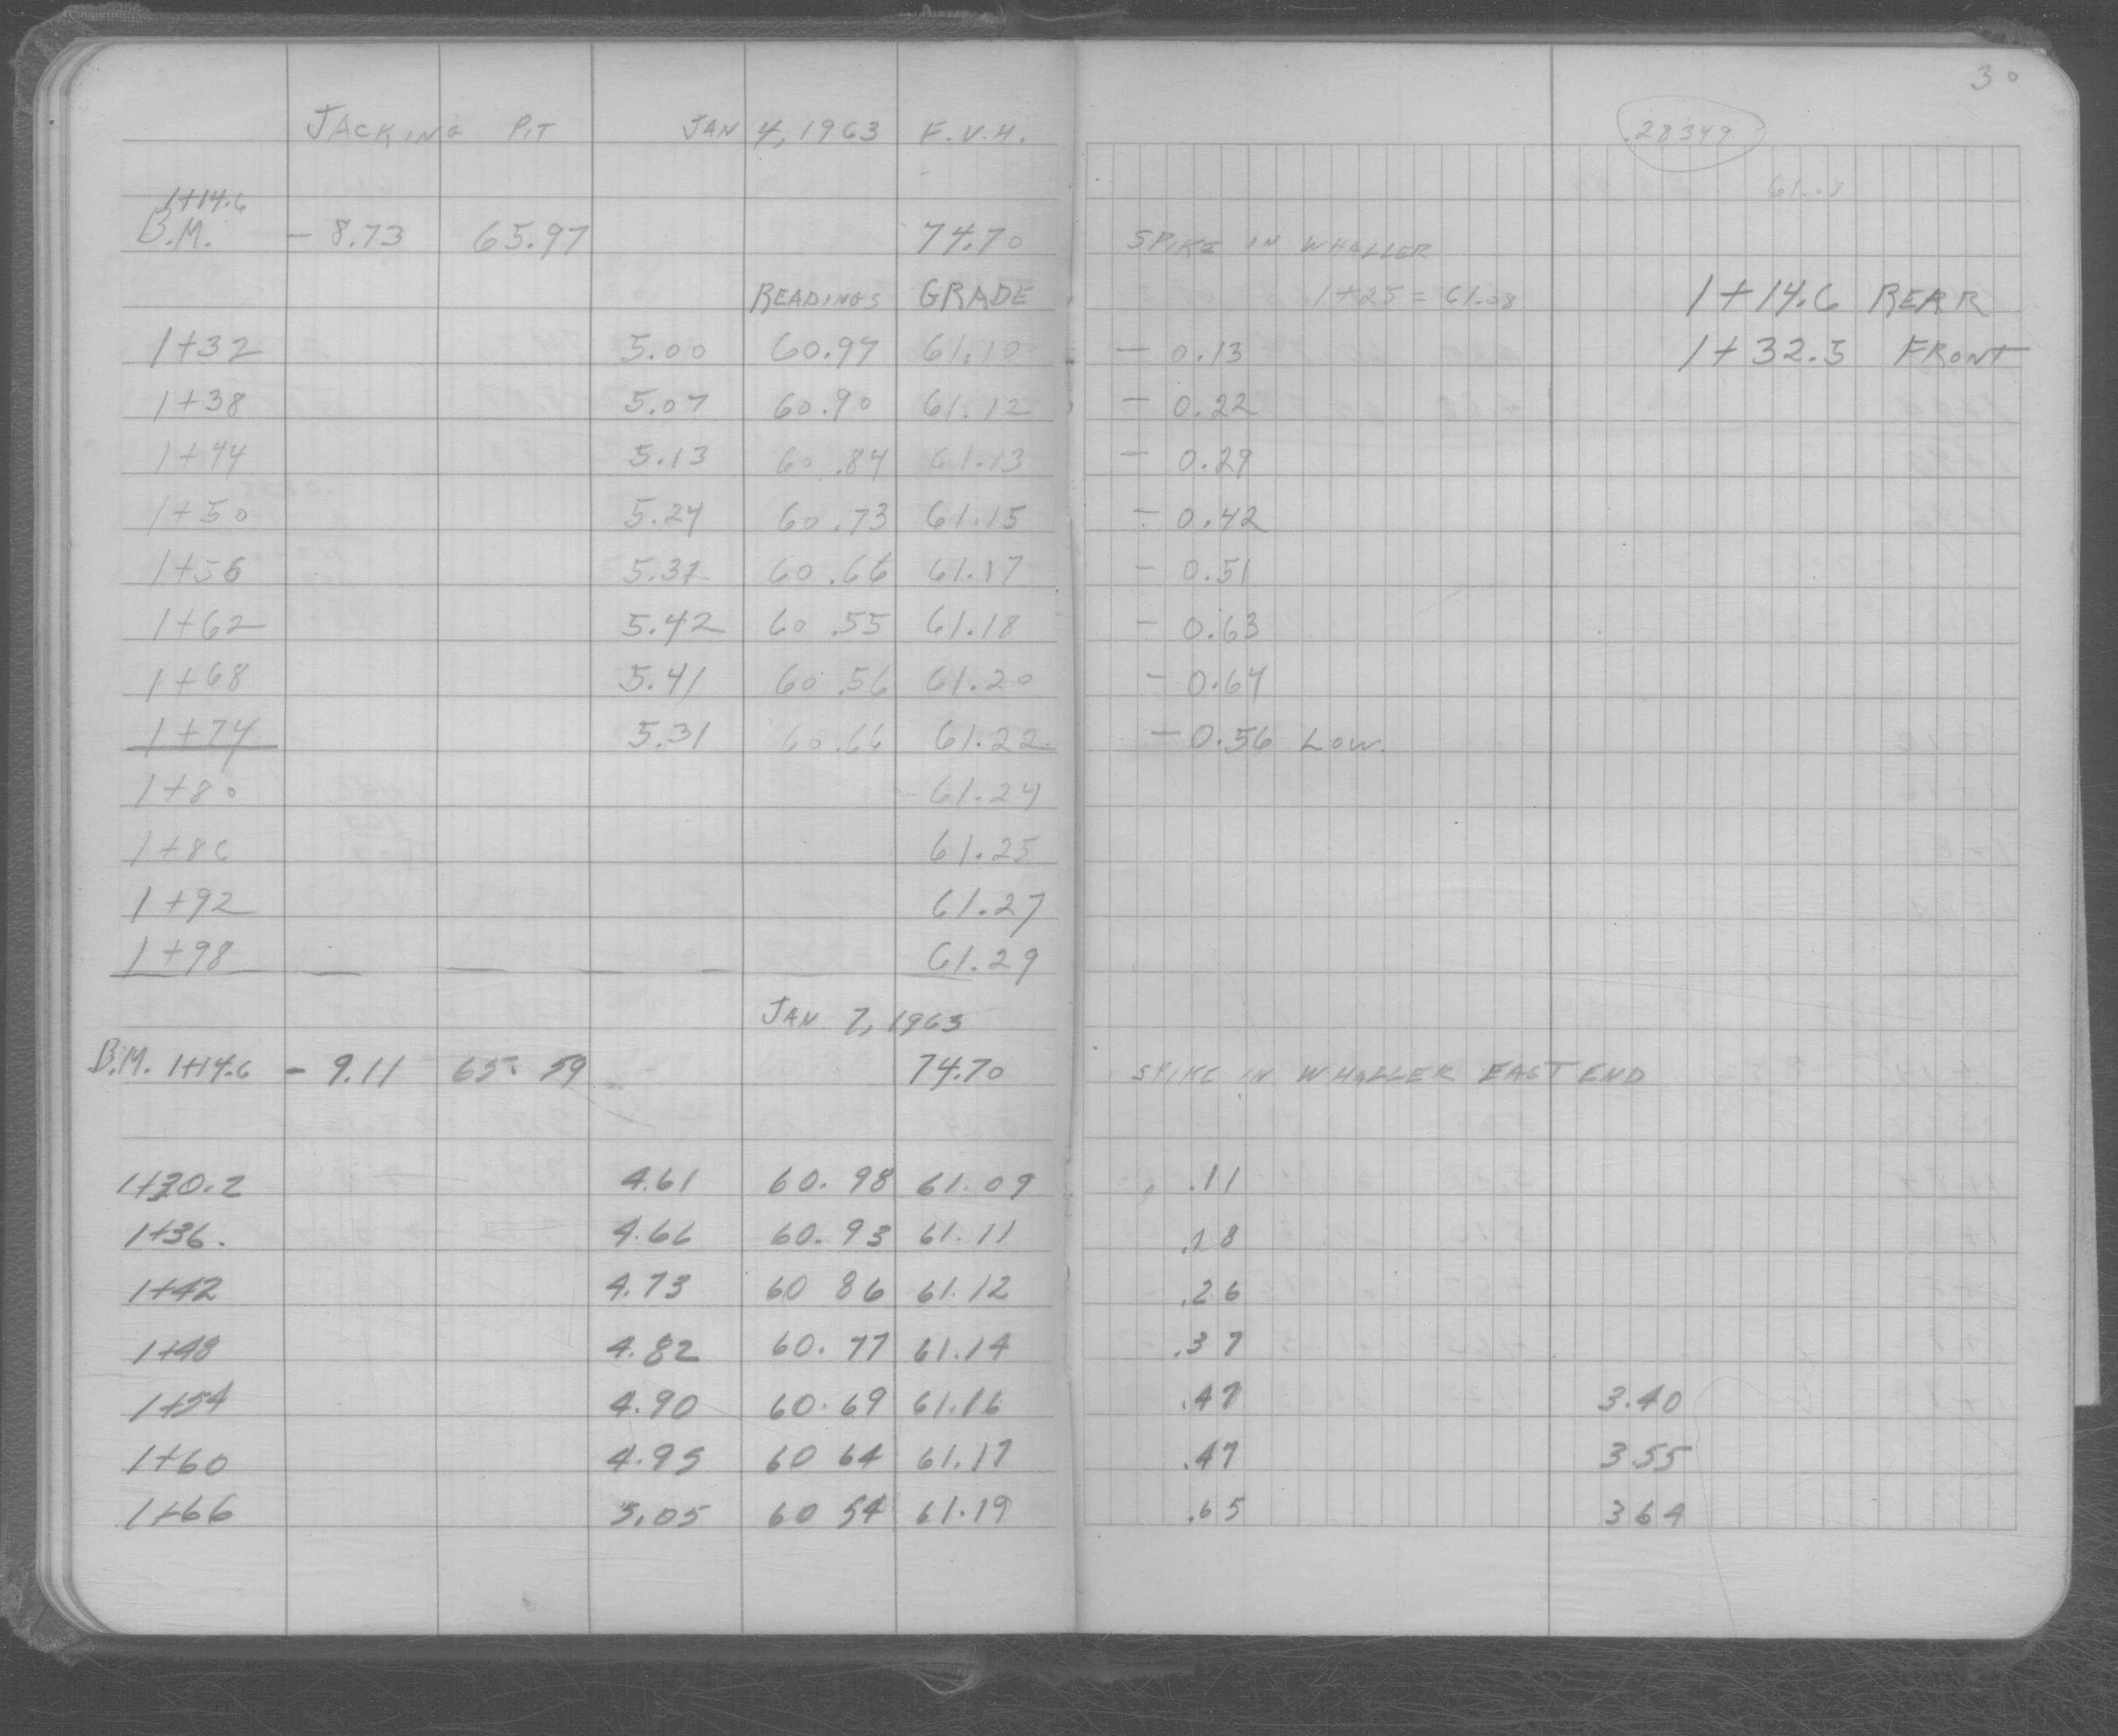 30
JACKING PIT JAN 4, 1963 F.V.H. .28349
1+14.6 61.08
B.M. - 8.73 65.97 74.70 SPIKE IN WHALLER
READINGS GRADE 1+25 = 61.08 1+14.6 REAR
1+32 5.00 60.97 61.10 - 0.13 1+32.5 FRONT
1+38 5.07 60.90 61.12 - 0.22
1+44 5.13 60.84 61.13 - 0.29
1+50 5.24 60.73 61.15 - 0.42
1+56 5.31 60.66 61.17 - 0.51
1+62 5.42 60.55 61.18 - 0.63
1+68 5.41 60.56 61.20 - 0.64
1+74 5.31 60.66 61.22 - 0.56 LOW.
1+80 61.24
1+86 61.25
1+92 61.27
1+98 61.29
JAN 7, 1963
B.M. 1+14.6 - 9.11 65.59 74.70 SPIKE IN WHALLER EAST END
1+30.2 4.61 60.98 61.09 .11
1+36. 4.66 60.93 61.11 .18
1+42 4.73 60 86 61.12 .26
1+48 4.82 60.77 61.14 .37
1+54 4.90 60.69 61.16 .47 3.40
1+60 4.95 60 64 61.17 .47 3.55
1+66 5.05 60 54 61.19 .65 364